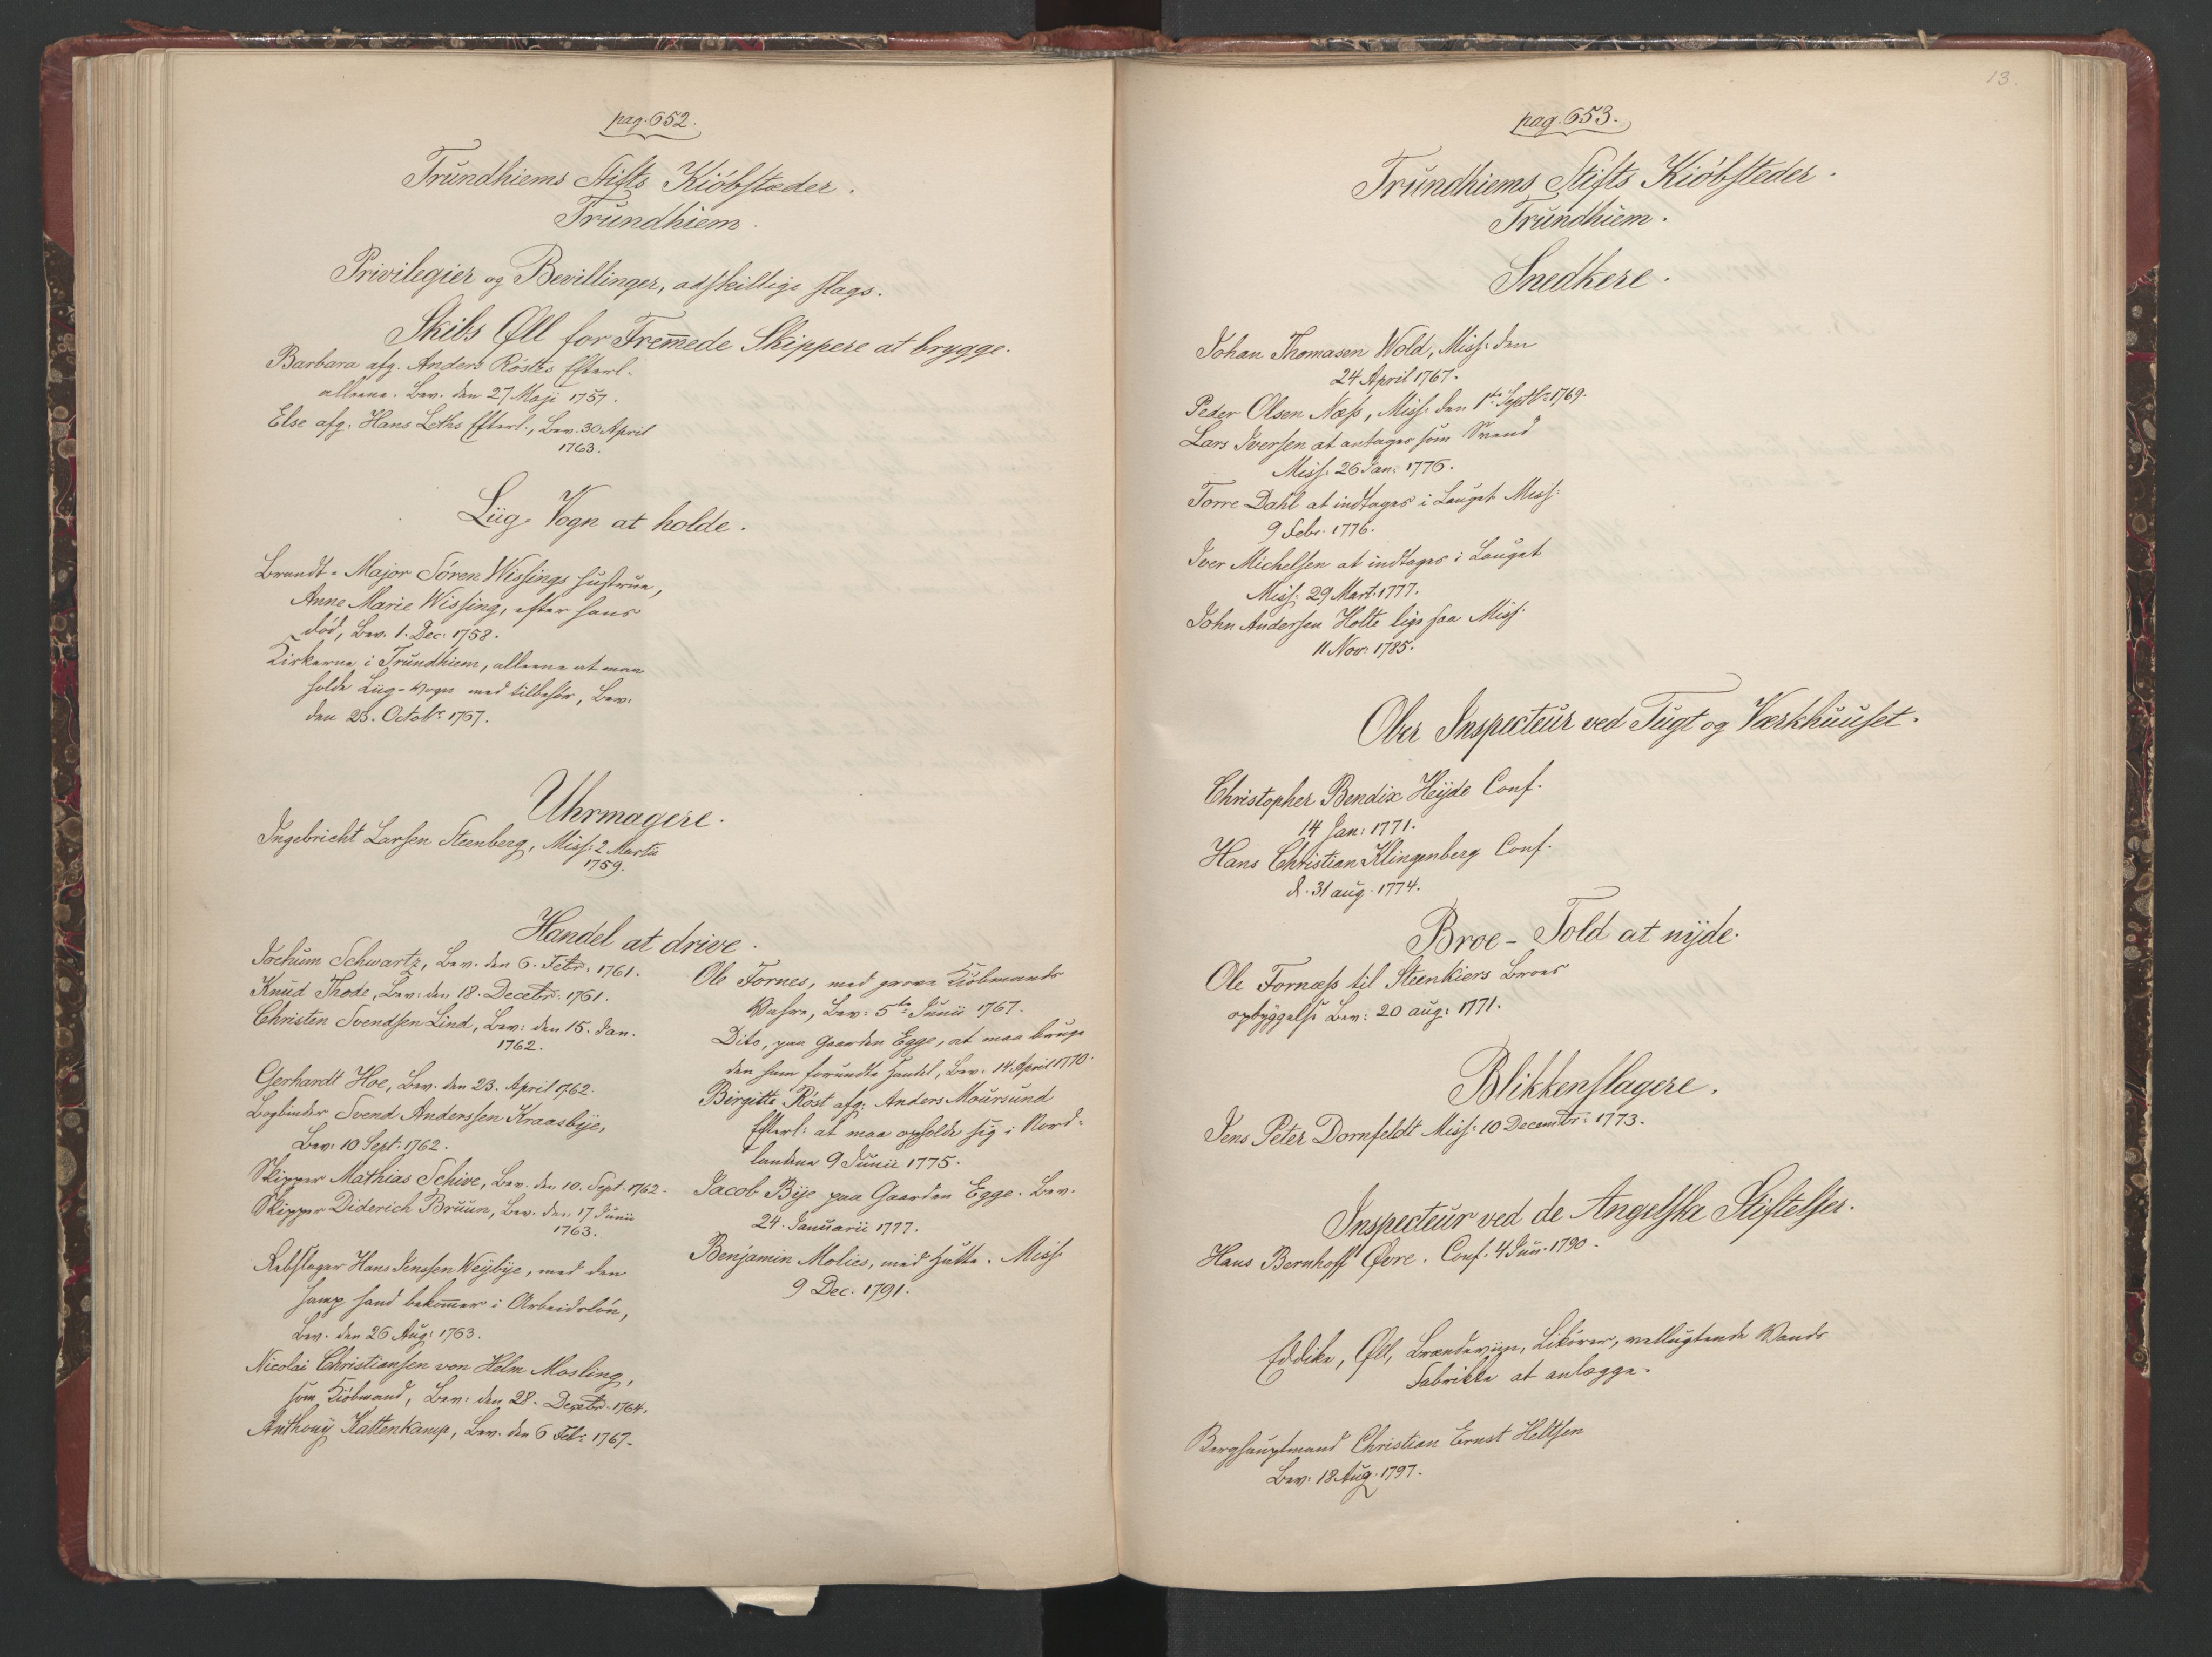 pag. 652.
Trundhiems Stifts Kiöbstæder.
Trundhiem.
Privilegier og Bevillinger, adskillige slags.
Skibs Øll for Fremede Skippere at brygge.
Barbara afg. Anders Röstes Efterl:
alleene. Bev. den 27 Maji 1757.
Else afg. Hans Leths Efterl:, Bev. 30 April
1763.
Liig-Vogn at holde.
Brandt-Major Sören Wissings Hustrue,
Anne Marie Wissing, efter hans
død, Bev. 1. Dec: 1758.
Kirkerne i Trundhiem, alleene at maa
holde Liig-Vogn med tilbehör, Bev.
den 23. Octobr: 1767.
Uhrmagere.
Ingebricht Larsen Steenberg, Miss: 2 Martii
1759.
Handel at drive.
Jochum Schwartz, Bev. den 6. Febr: 1761.
Knud Thode, Bev: den 18. Decebr: 1761.
Christen Svendsen Lind, Bev: den 15. Jan.
1762.
Gerhardt Hoe, Bev. den 23. April 1762.
Bogbinder Svend Anderssen Kraasbye,
Bev: 10 Sept: 1762.
Skipper Mathias Schive, Bev. den 10. Sept. 1762.
Skipper Diderich Bruun, Bev. den 17 Junii
1763.
Rebslager Hans Jenssen Weybye, med den
Hamp hand bekomer i Arbeidslön,
Bev. den 26 Aug: 1763.
Nicolai Christiansen von Helm Mosling,
som Kiöbmand, Bev: den 28. Decebr. 1764.
Anthony Kattenkamp, Bev. den 6 Feb: 1767.
Ole Fornes, med grove Kiöbmands
Vahre, Bev: 5te Junii 1767.
Dito, paa Gaarden Egge, at maa bruge
den ham forundte Handel, Bev: 14 April 1770.
Birgitte Röst afg: Anders Moursund
Efterl: at maa opholde sig i Nord-
landene 9 Junii 1775.
Jacob Bye paa Gaarden Egge. Bev.
24. Januarii 1777.
Benjamin Molies, med Hatte. Miss
9 Dec. 1791.
13.
pag. 653.
Trundhiems Stifts Kiöbsteder.
Trundhiem.
Snedkere.
Johan Thomasen Wold, Miss: den
24 April 1767.
Peder Olsen Næss, Miss: den 1te Septbr: 1769.
Lars Iversen at antages som Svend
Miss: 26 Jan: 1776.
Torre Dahl at indtages i Lauget Miss:
9 Febr. 1776.
Iver Michelsen at indtages i Lauget
Miss: 29 Mart. 1777.
John Andersen Holte lige saa Miss:
11 Nov: 1785.
Ober Inspecteur ved Tugt og Værkhuuset.
Christopher Bendix Heyde Conf.
14 Jan: 1771.
Hans Christian Klingenberg Conf.
d. 31 aug. 1774.
Broe-Told at nyde.
Ole Fornæss til Steenkiers Broes
opbyggelse Bev: 20 aug: 1771.
Blikkenslagere.
Jens Peter Dornfeldt Miss: 10 Decembr: 1773.
Inspecteur ved de Angelske Stiftelser.
Hans Bernhoft Øvre. Conf. 4 Jun. 1790.
Eddike, Øll, Brændeviin, Likörer, vellugtende Vande
Fabrikke at anlægge.
Berghauptmand Christian Ernst Heltzen
Bev: 18 Aug. 1797.